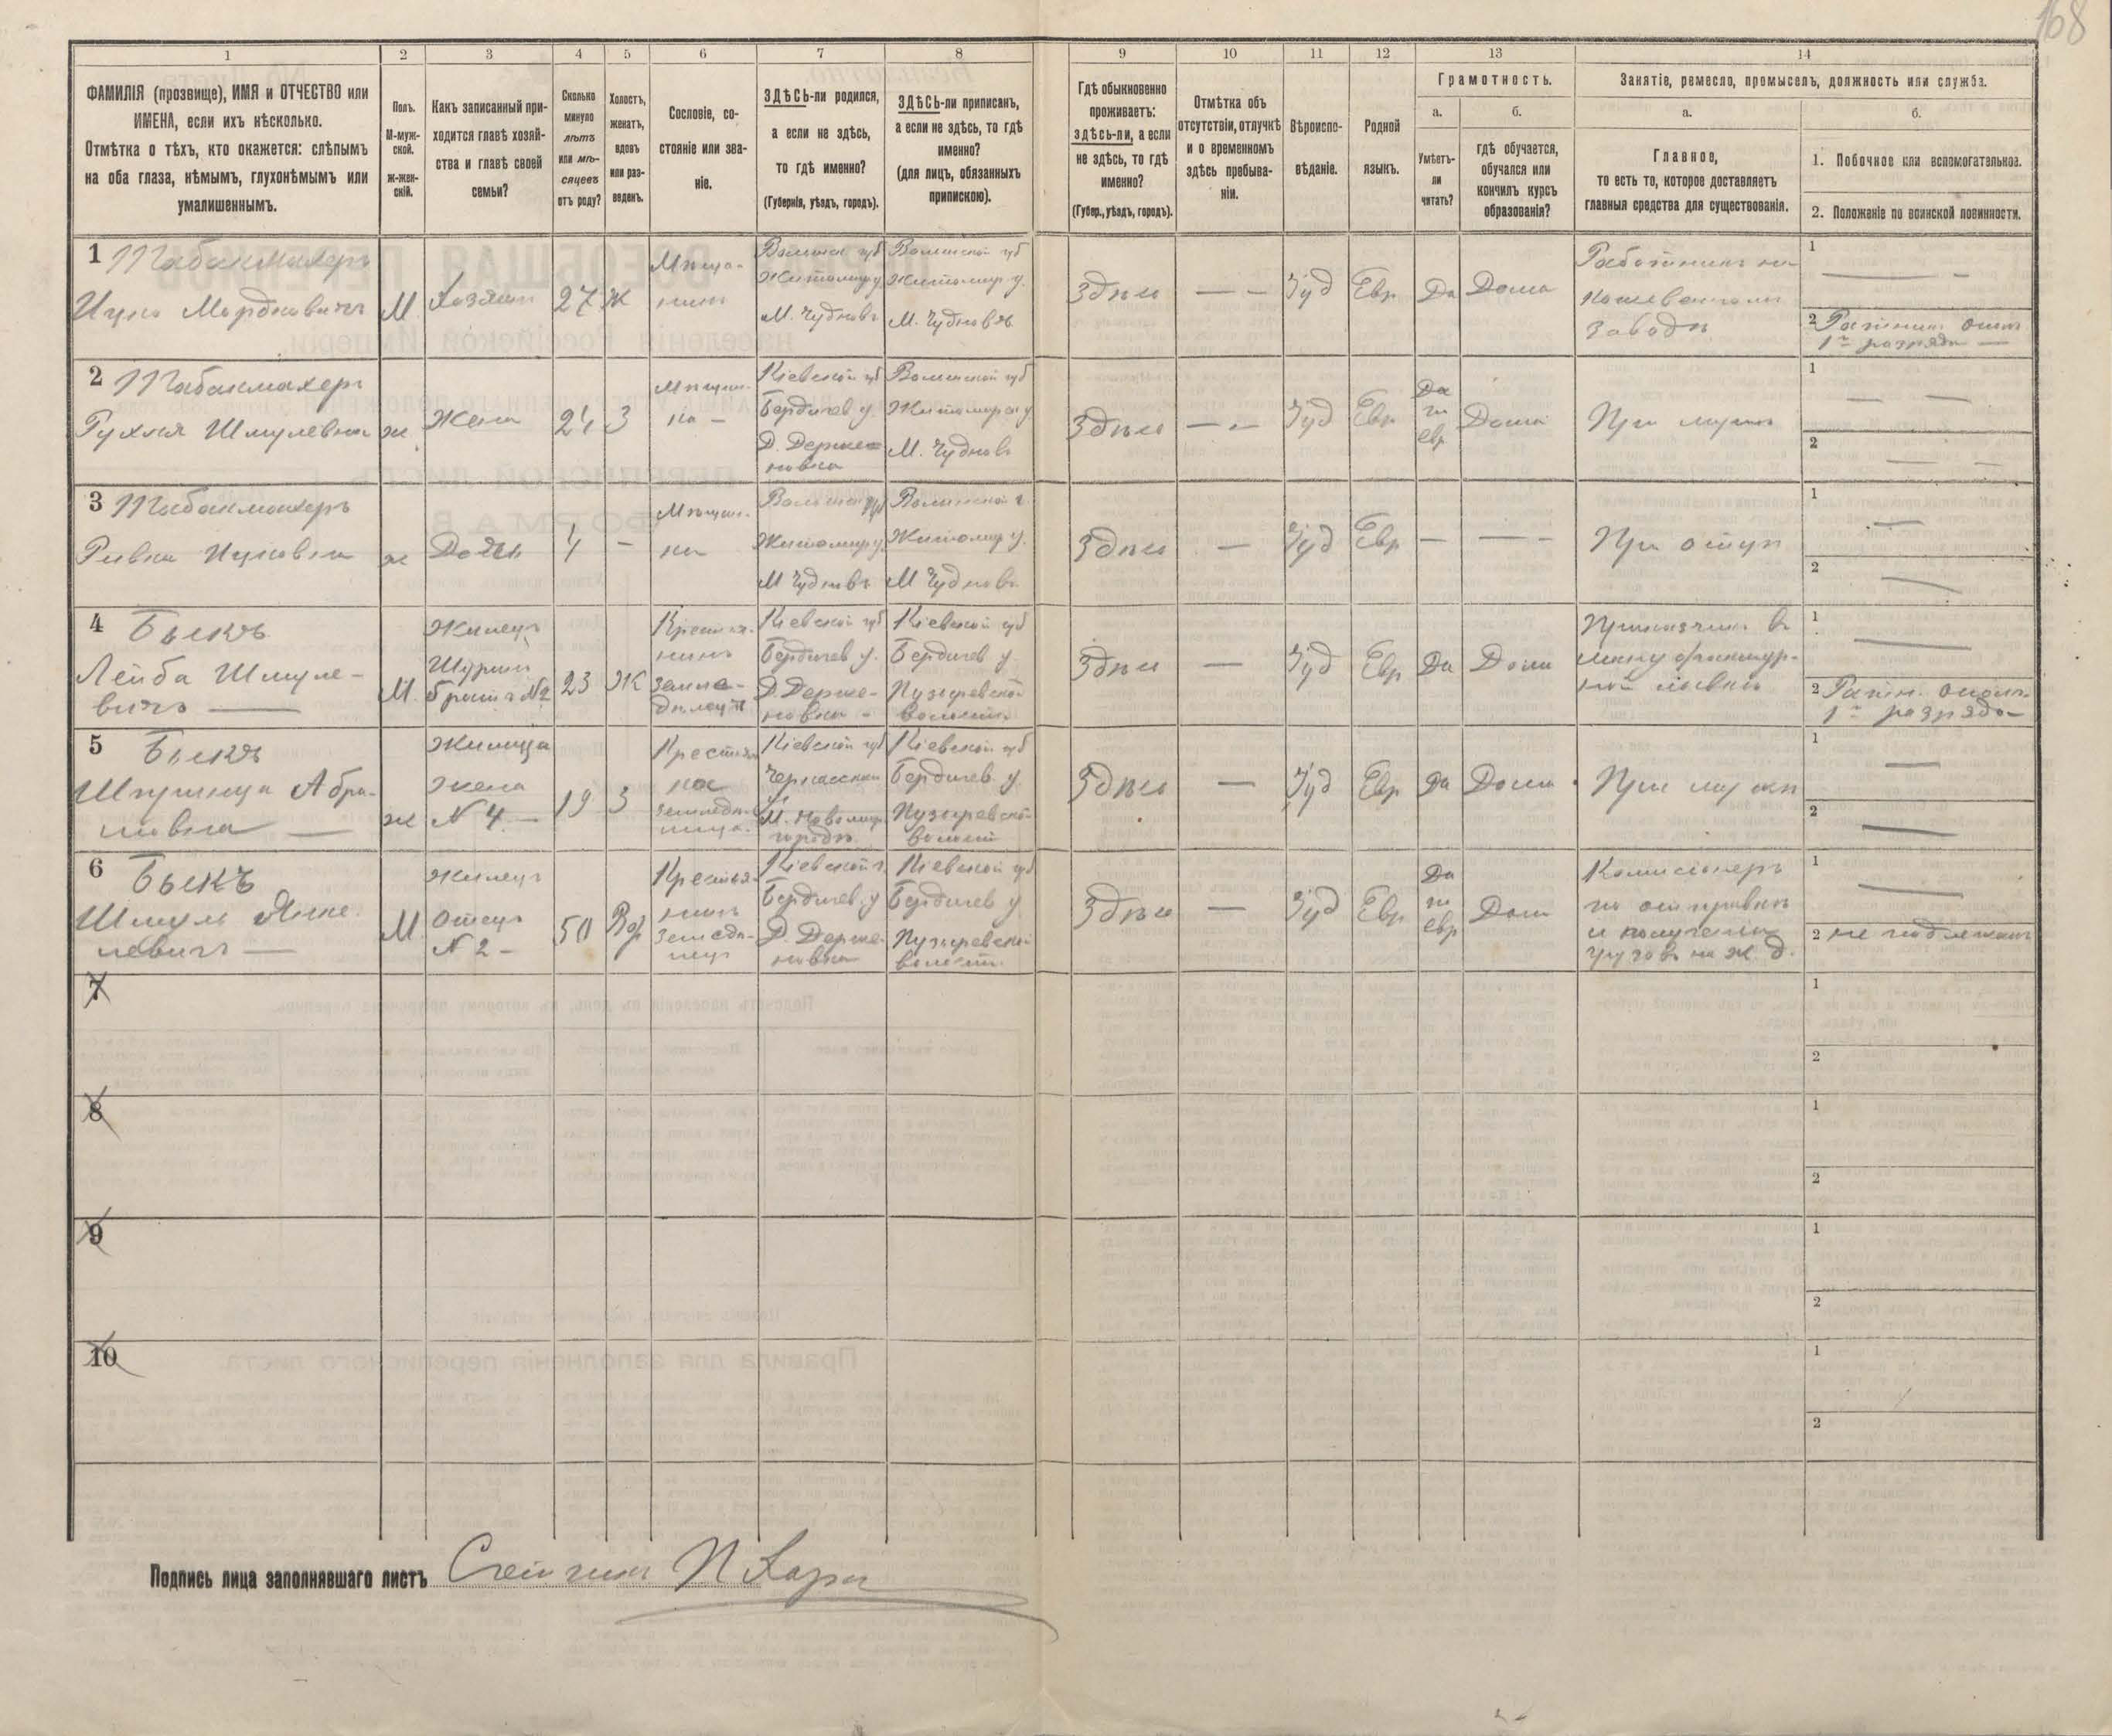 168
1
2
3
4
5
6
7
8
9
10
11
12
13
14
ФАМИЛІЯ (прозвище), ИМЯ и ОТЧЕСТВО или
ИМЕНА, если ихъ нѣсколько.
Отмѣтка о тѣхъ, кто окажется: слѣпымъ
на оба глаза, нѣмымъ, глухонѣмымъ или
умалишеннымъ.
Полъ.
М-муж-
ской.
Ж-жен-
скій.
Какъ записанный при-
ходится главѣ хозяй-
ства и главѣ своей
семьи?
Сколько
минуло
лѣтъ
или мѣ-
сяцевъ
отъ роду?
Холостъ,
женатъ,
вдовъ
или раз-
веденъ.
Сословіе, со-
стояніе или зва-
ніе.
ЗДѢСЬ-ли родился,
а если не здѣсь,
то гдѣ именно?
(Губернія, уѣздъ, городъ).
ЗДѢСЬ-ли приписанъ,
а если не здѣсь, то гдѣ
именно?
(для лицъ, обязанныхъ
припискою).
Гдѣ обыкновенно
проживаетъ:
здѣсь-ли, а если
не здѣсь, то гдѣ
именно?
(Губер., уѣздъ, городъ).
Отмѣтка объ
отсутствіи, отлучкѣ
и о временномъ
здѣсь пребыва-
ніи.
Вѣроиспо-
вѣданіе.
Родной
языкъ.
Грамотность.
а.
Умѣетъ-
ли
читать?
б.
гдѣ обучается,
обучался или
кончилъ курсъ
образованія?
Занятіе, ремесло, промыселъ, должность или служба.
а.
Главное,
то есть то, которое доставляетъ
главныя средства для существованія.
б.
1. Побочное или вспомогательное.
2. Положеніе по воинской повинности.
1 Табакмахеръ
Ицко Мордковичъ
М.
Хозяин
27
Ж
Мѣща-
нинъ
Волынск губ
Житомир у
М. Чудновъ
Волынской губ
Житомир у.
М. Чудновъ
Здѣсь
— —
Іуд
Евр
Да
Дома
Работникъ на
кожевенномъ
заводѣ
1
—
2 Ратник опол
1го разряда —
2 Табакмахеръ
Рухля Шмулевна
ж
Жена
24
З
Мѣщан-
ка —
Кіевской губ
Бердичев у.
Д. Держа-
новка
Волынской губ
Житомирск у
М. Чудновъ
Здѣсь
— —
Іуд
Евр
Да
по
евр
Дома
При мужѣ
1
— —
2
— —
3 Табакмахеръ
Ривка Ицковна
ж
Дочь
4
—
Мѣщан-
ка
Волынск губ
Житомир у
М Чудновъ
Волынской г.
Житомир у.
М Чудновъ
Здѣсь
—
Іуд
Евр
—
— -
При отцѣ
1
—
2
—
4 Быкъ
Лейба Шмуле-
вичъ —
М.
Жилецъ
Шуринъ
братъ №2
23
Ж
Крестья-
нинъ
земле-
дѣлецъ
Кіевской губ
Бердичев у.
Д. Держа-
новка -
Кіевской губ
Бердичев у
Пузыревской
волости
Здѣсь
—
Іуд
Евр
Да
Дома
Приказчикъ в
мануфактур-
ной лавкѣ
1
—
2 Ратн. ополч.
1го разряда
5 Быкъ
Абра-
мовна —
ж
Жилица
жена
№ 4 —
19
З
Крестьян
ка
Кіевской губ
Черкасскаго
у.
Кіевской губ
Бердичев у
Пузыревской
волости
Здѣсь
—
Іуд
Евр
Да
Дома
При мужѣ
1
—
2
—
6 Быкъ
Шмуль Янке-
левичъ —
М
Жилецъ
Отецъ
№ 2 —
50
Крестья-
нинъ
Кіевской г.
Бердичев. у
Д. Держа-
новка
Кіевской губ
Бердичев у
Пузыревской
волости
Здѣсь
—
Іуд
Евр
Да
по
евр
Дома
Комисіонеръ
по отправкѣ
и полученію
грузовъ на ж. д.
1
—
2 не подлежитъ
7
1
2
8
1
2
9
1
2
10
1
2
Подпись лица заполнявшаго листъ